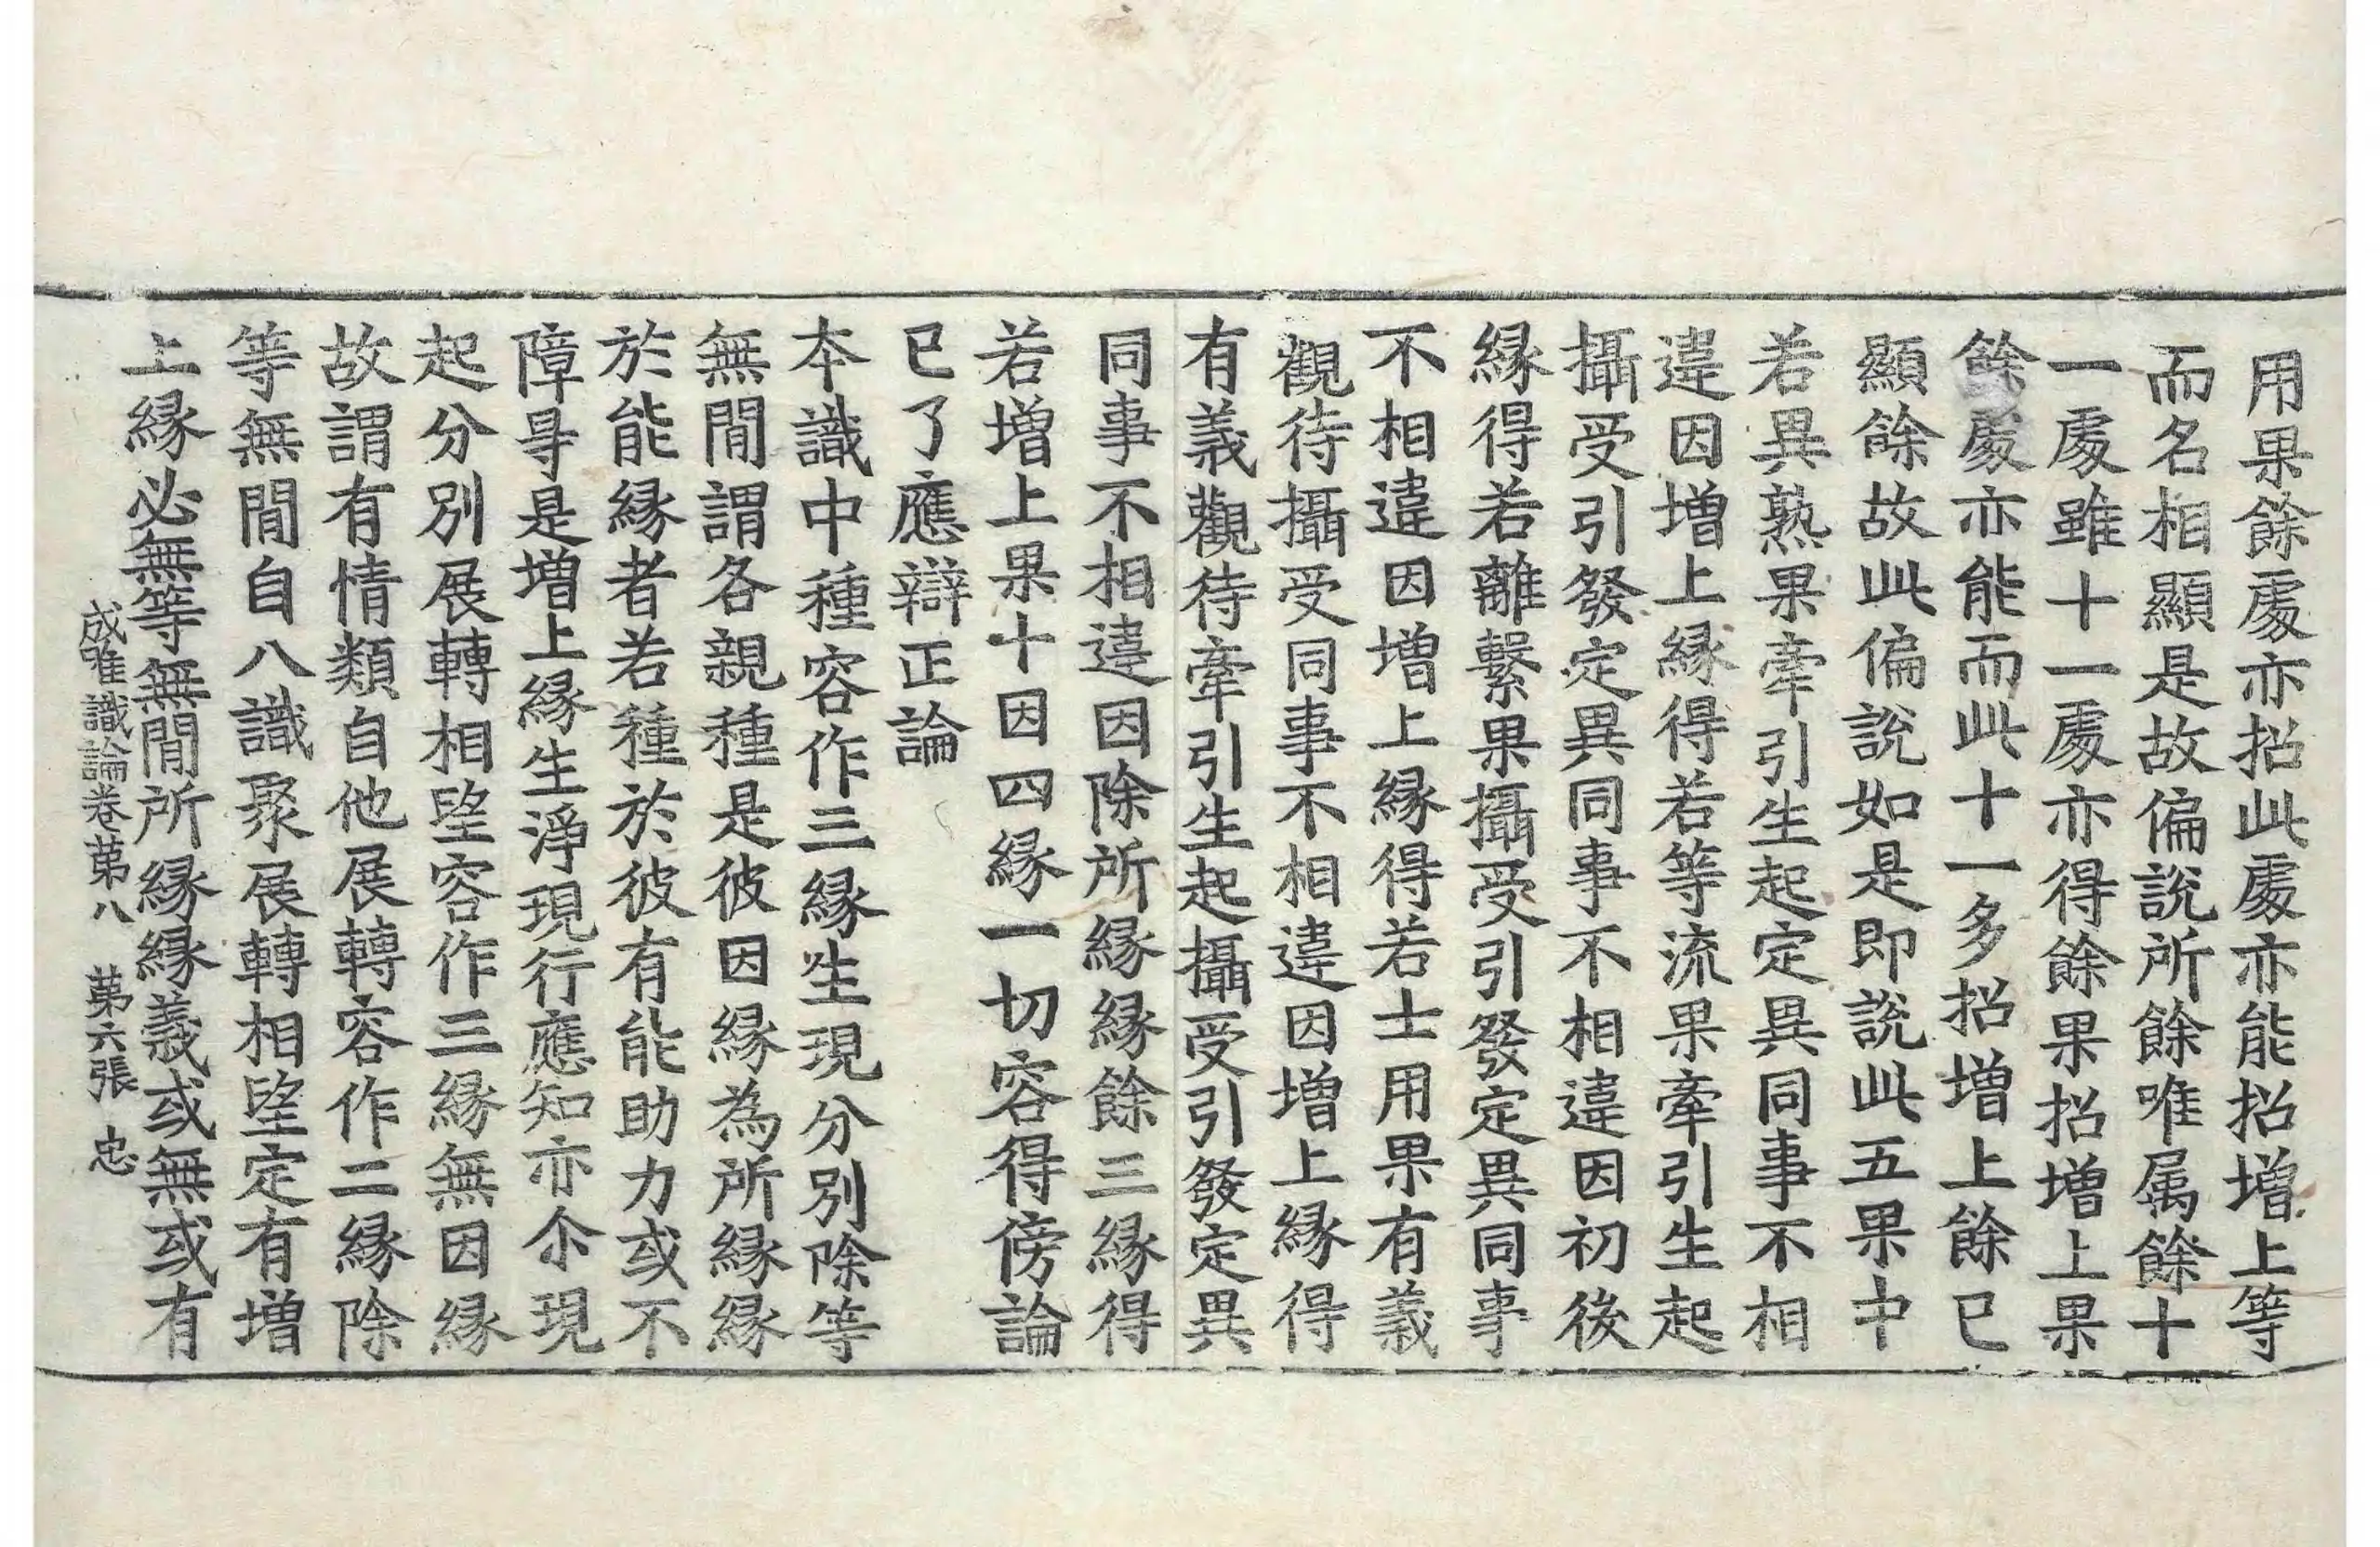 用果餘處亦招此處亦能招增上等
而名相顯是故偏說所餘唯属餘十
一處雖十一處亦得餘果招增上果
餘處亦能而此十一多招增上餘已
顯餘故此偏說如是即說此五果中
若異熟果牽引生起定異同事不相
違因增上緣得若等流果牽引生起
攝受引發定異同事不相違因初後
緣得若離繫果攝受引發定異同事
不相違因增上緣得若士用果有義
觀待攝受同事不相違因增上緣得
有義觀待牽引生起攝受引發定異
同事不相違因除所緣緣餘三緣得
若增上果十因四緣一切容得傍論
已了應辯正論
本識中種容作三緣生現分別除等
無間謂各親種是彼因緣為所緣緣
於能緣者若種於彼有能助力或不
障㝵是增上緣生淨現行應知亦尒現
起分別展轉相望容作三緣無因緣
故謂有情類自他展轉容作二緣除
等無間自八識聚展轉相望定有增
上緣必無等無間所緣緣義或無或有
成唯識論卷第八 第六張 忠